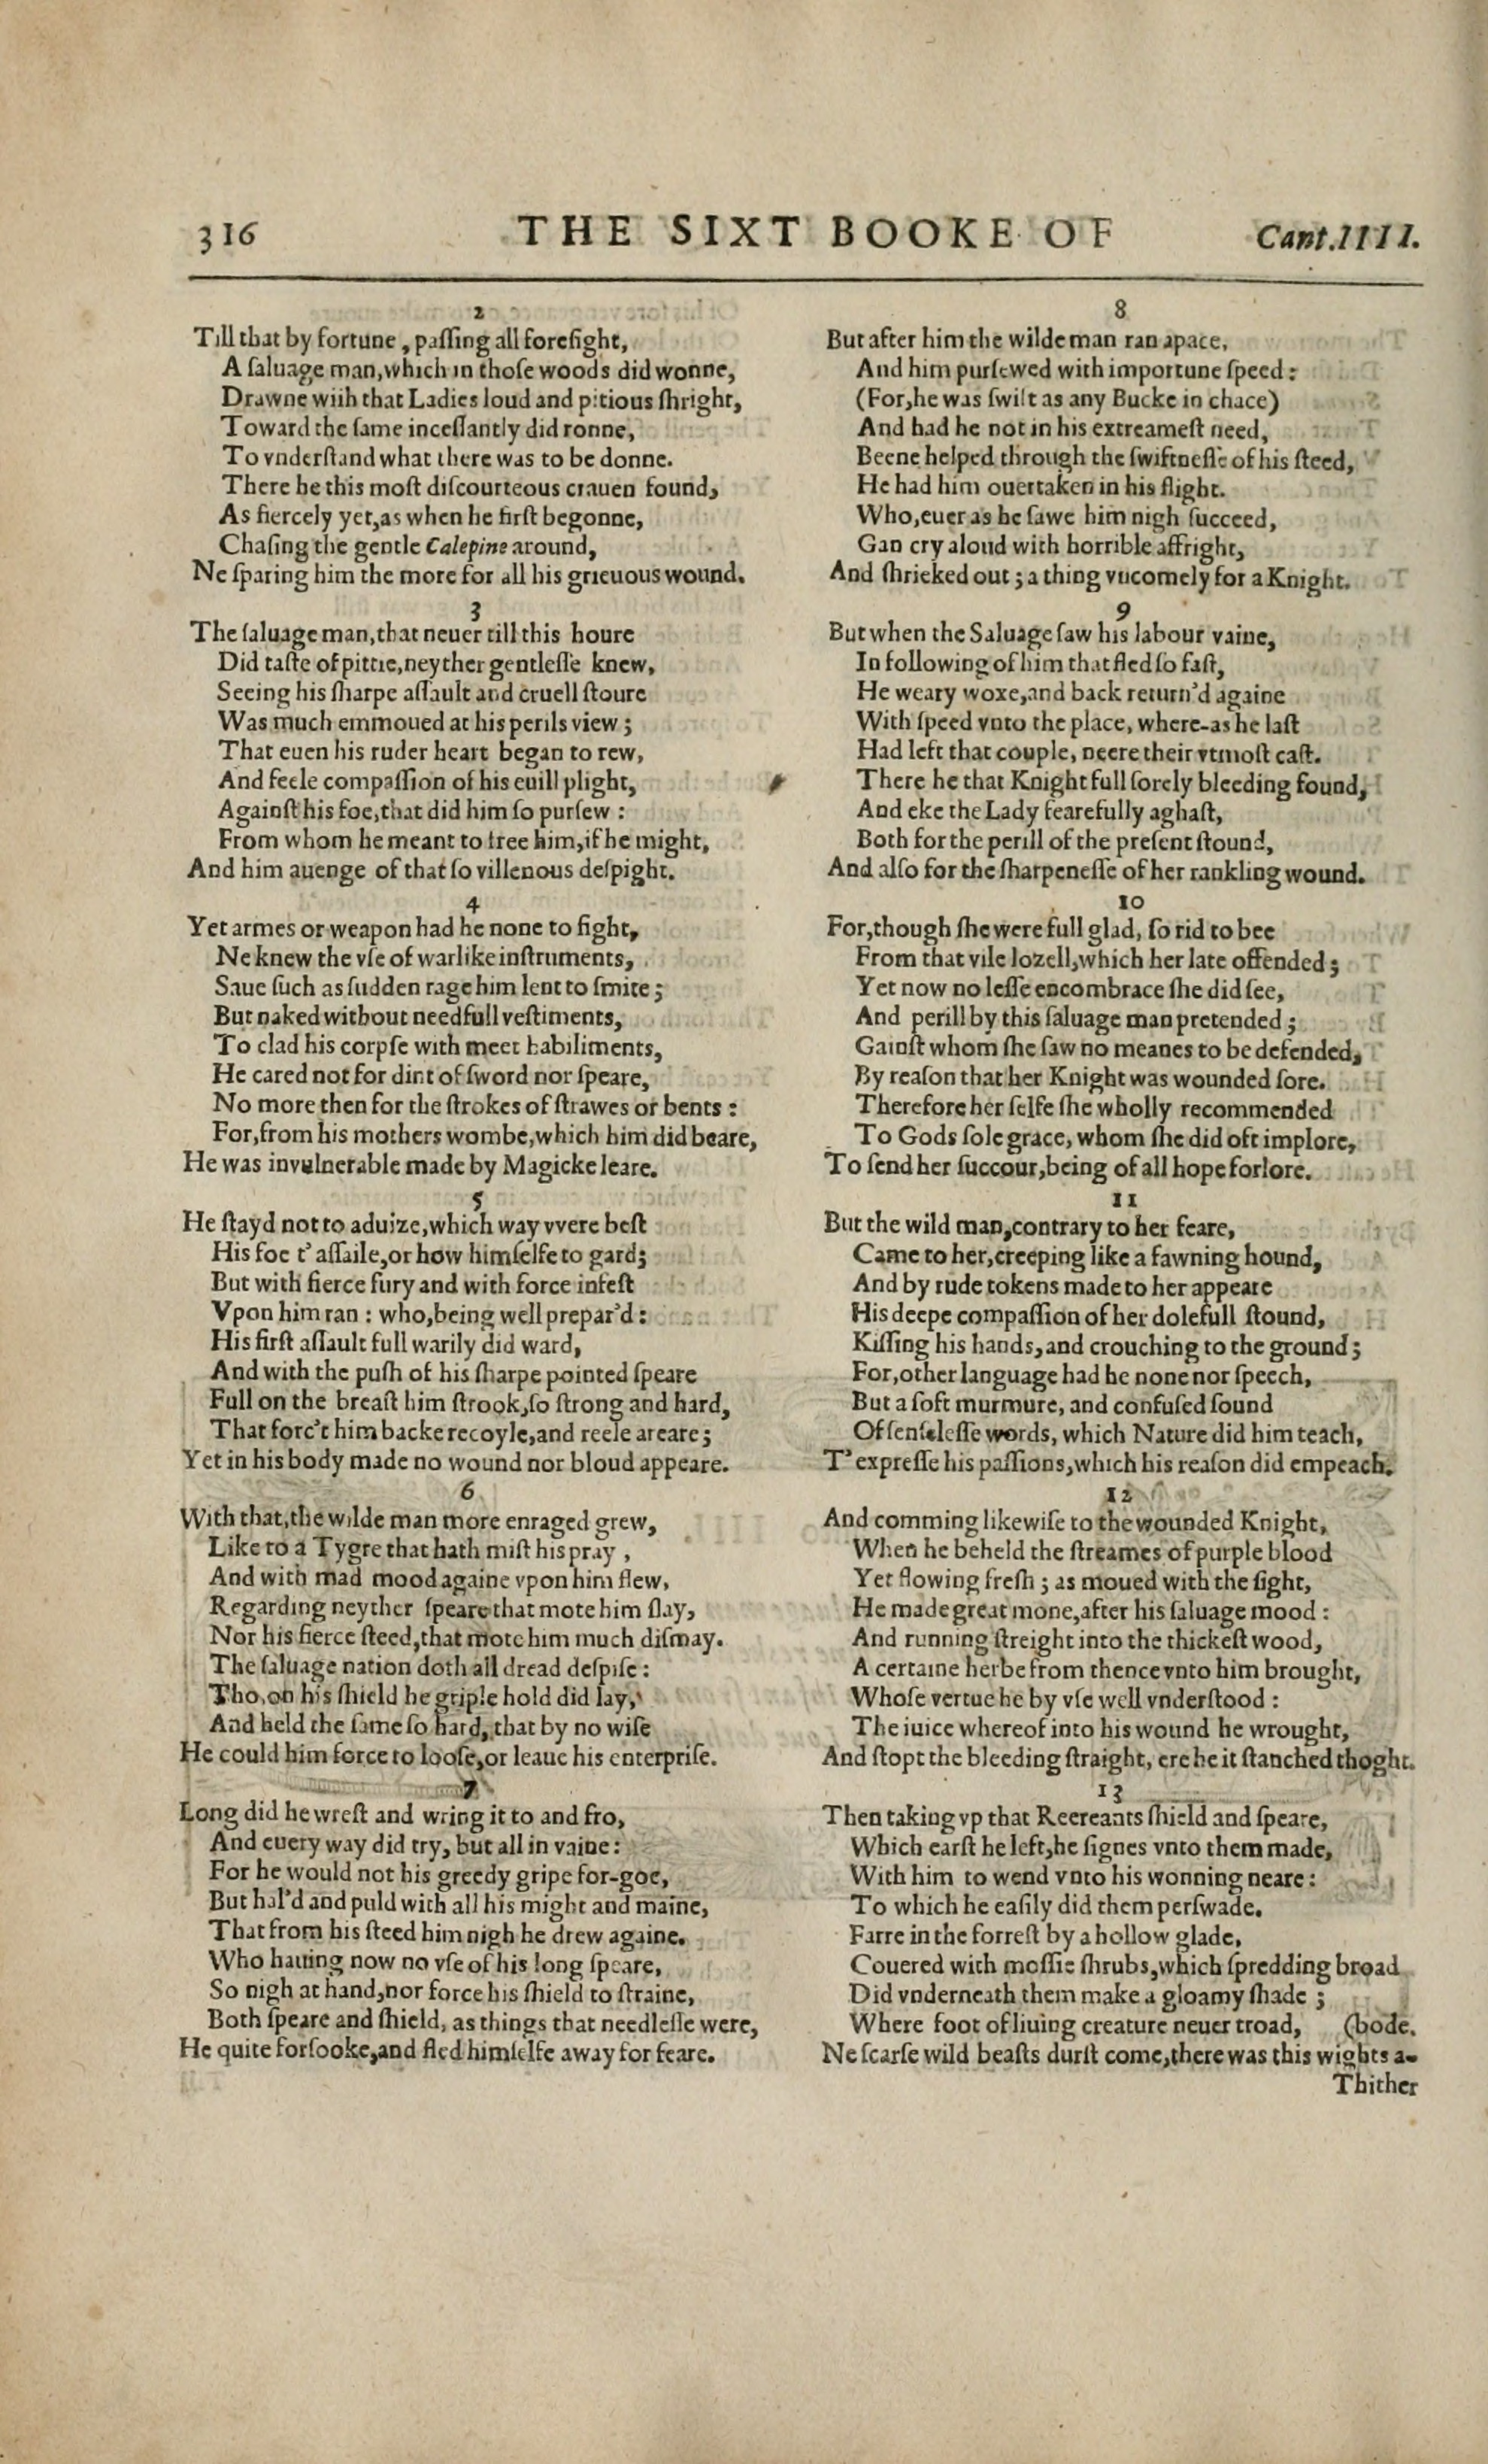 316 THE SIXT BOOKE OF Cant.IIII.
2
Till that by fortune, paſſing all foreſight,
A ſaluage man, which in thoſe woods did wonne,
Drawne with that Ladies loud and pitious ſhright,
Toward the ſame inceſſantly did ronne,
To vnderſtand what there was to be donne.
There he this moſt diſcourteous crauen found,
As fiercely yet, as when he firſt begonne,
Chaſing the gentle Calepine around,
Ne ſparing him the more for all his grieuous wound.
3
The ſaluage man, that neuer till this houre
Did taſte of pittie, neyther gentleſſe knew,
Seeing his ſharpe aſſault and cruell ſtoure
Was much emmoued at his perils view;
That euen his ruder heart began to rew,
And feele compaſſion of his euill plight,
Againſt his foe, that did him ſo purſew:
From whom he meant to free him, if he might,
And him auenge of that ſo villenous deſpight.
4
Yet armes or weapon had he none to fight,
Ne knew the vſe of warlike inſtruments,
Saue ſuch as ſudden rage him lent to ſmite;
But naked without needfull veſtiments,
To clad his corpſe with meet habiliments,
He cared not for dint of ſword nor ſpeare,
No more then for the ſtrokes of ſtrawes or bents:
For, from his mothers wombe, which him did beare,
He was invulnerable made by Magicke leare.
5
He ſtayd not to aduize, which way vvere beſt
His foe t'aſſaile, or how himſelfe to gard;
But with fierce fury and with force infeſt
Vpon him ran: who, being well prepar'd:
His firſt aſſault full warily did ward,
And with the puſh of his ſharpe pointed ſpeare
Full on the breaſt him ſtrook, ſo ſtrong and hard,
That forc't him backe recoyle, and reele areare;
Yet in his body made no wound nor bloud appeare.
6
With that, the wilde man more enraged grew,
Like to a Tygre that hath miſt his pray,
And with mad mood againe vpon him flew,
Regarding neyther ſpeare that mote him ſlay,
Nor his fierce ſteed, that mote him much diſmay.
The ſaluage nation doth all dread deſpiſe:
Tho, on his ſhield he griple hold did lay,
And held the ſame ſo hard, that by no wiſe
He could him force to looſe, or leaue his enterpriſe.
7
Long did he wreſt and wring it to and fro,
And euery way did try, but all in vaine:
For he would not his greedy gripe for-goe,
But hal'd and puld with all his might and maine,
That from his ſteed him nigh he drew againe.
Who hauing now no vſe of his long ſpeare,
So nigh at hand, nor force his ſhield to ſtraine,
Both ſpeare and ſhield, as things that needleſſe were,
He quite forſooke, and fled himſelfe away for feare.
8
But after him the wilde man ran apace,
And him purſewed with importune ſpeed:
(For, he was ſwift as any Bucke in chace)
And had he not in his extreameſt need,
Beene helped through the ſwiftneſſe of his ſteed,
He had him ouertaken in his flight.
Who, euer as he ſawe him nigh ſucceed,
Gan cry aloud with horrible affright,
And ſhrieked out; a thing vncomely for a Knight.
9
But when the Saluage ſaw his labour vaine,
In following of him that fled ſo faſt,
He weary woxe, and back return'd againe
With ſpeed vnto the place, where-as he laſt
Had left that couple, neere their vtmoſt caſt.
There he that Knight full ſorely bleeding found,
And eke the Lady fearefully aghaſt,
Both for the perill of the preſent ſtound,
And alſo for the ſharpeneſſe of her rankling wound.
10
For, though ſhe were full glad, ſo rid to bee
From that vile lozell, which her late offended;
Yet now no leſſe encombrace ſhe did ſee,
And perill by this ſaluage man pretended;
Gainſt whom ſhe ſaw no meanes to be defended,
By reaſon that her Knight was wounded ſore.
Therefore her ſelfe ſhe wholly recommended
To Gods ſole grace, whom ſhe did oft implore,
To ſend her ſuccour, being of all hope forlore.
11
But the wild man, contrary to her feare,
Came to her, creeping like a fawning hound,
And by rude tokens made to her appeare
His deepe compaſſion of her dolefull ſtound,
Kiſſing his hands, and crouching to the ground;
For, other language had he none nor ſpeech,
But a ſoft murmure, and confuſed ſound
Of ſenſeleſſe words, which Nature did him teach,
T'expreſſe his paſſions, which his reaſon did empeach.
12
And comming likewiſe to the wounded Knight,
When he beheld the ſtreames of purple blood
Yet flowing freſh; as moued with the ſight,
He made great mone, after his ſaluage mood:
And running ſtreight into the thickeſt wood,
A certaine herbe from thence vnto him brought,
Whoſe vertue he by vſe well vnderſtood:
The iuice whereof into his wound he wrought,
And ſtopt the bleeding ſtraight, ere he it ſtanched thoght.
13
Then taking vp that Recreants ſhield and ſpeare,
Which earſt he left, he ſignes vnto them made,
With him to wend vnto his wonning neare:
To which he eaſily did them perſwade.
Farre in the forreſt by a hollow glade,
Couered with moſſie ſhrubs, which ſpredding broad
Did vnderneath them make a gloamy ſhade;
Where foot of liuing creature neuer troad, (bode.
Ne ſcarſe wild beaſts durſt come, there was this wights a-
Thither